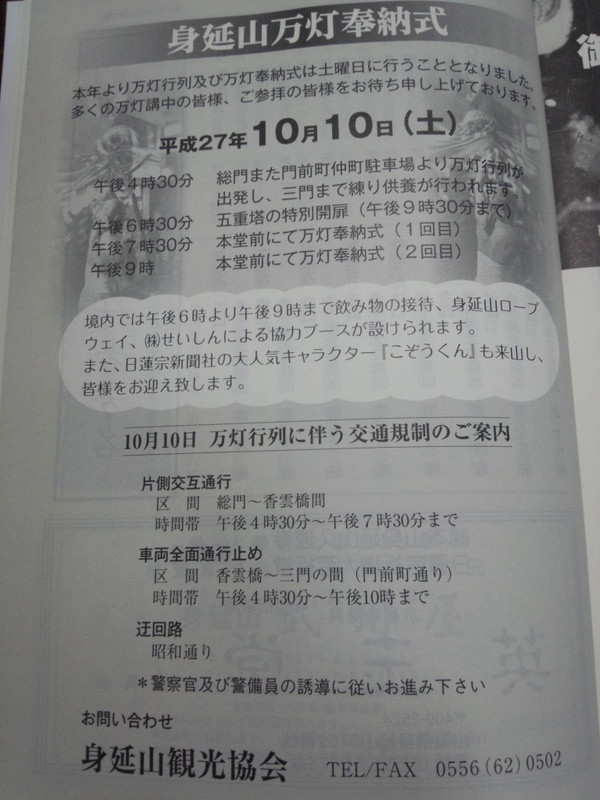 身延山万灯奉納式
本年より万灯行列及び万灯奉納式は土曜日に行うこととなりました。
多くの万灯講中の皆様、ご参拝の皆様をお待ち申し上げております。
平成27年10月10日（土）
午後４時30分　総門また門前町仲町駐車場より万灯行列が
出発し、三門まで練り供養が行われます
午後６時30分　五重塔の特別開扉（午後９時30分まで）
午後７時30分　本堂前にて万灯奉納式（１回目）
午後９時　本堂前にて万灯奉納式（２回目）
境内では午後６時より午後９時まで飲み物の接待、身延山ロープ
ウェイ、㈱せいしんによる協力ブースが設けられます。
また、日蓮宗新聞社の大人気キャラクター『こぞうくん』も来山し、
皆様をお迎え致します。
10月10日 万灯行列に伴う交通規制のご案内
片側交互通行
区　間　総門～香雲橋間
時間帯　午後４時30分～午後７時30分まで
車両全面通行止め
区　間　香雲橋～三門の間（門前町通り）
時間帯　午後４時30分～午後10時まで
迂回路
昭和通り
＊警察官及び警備員の誘導に従いお進み下さい
お問い合わせ
身延山観光協会　TEL/FAX　0556(62)0502